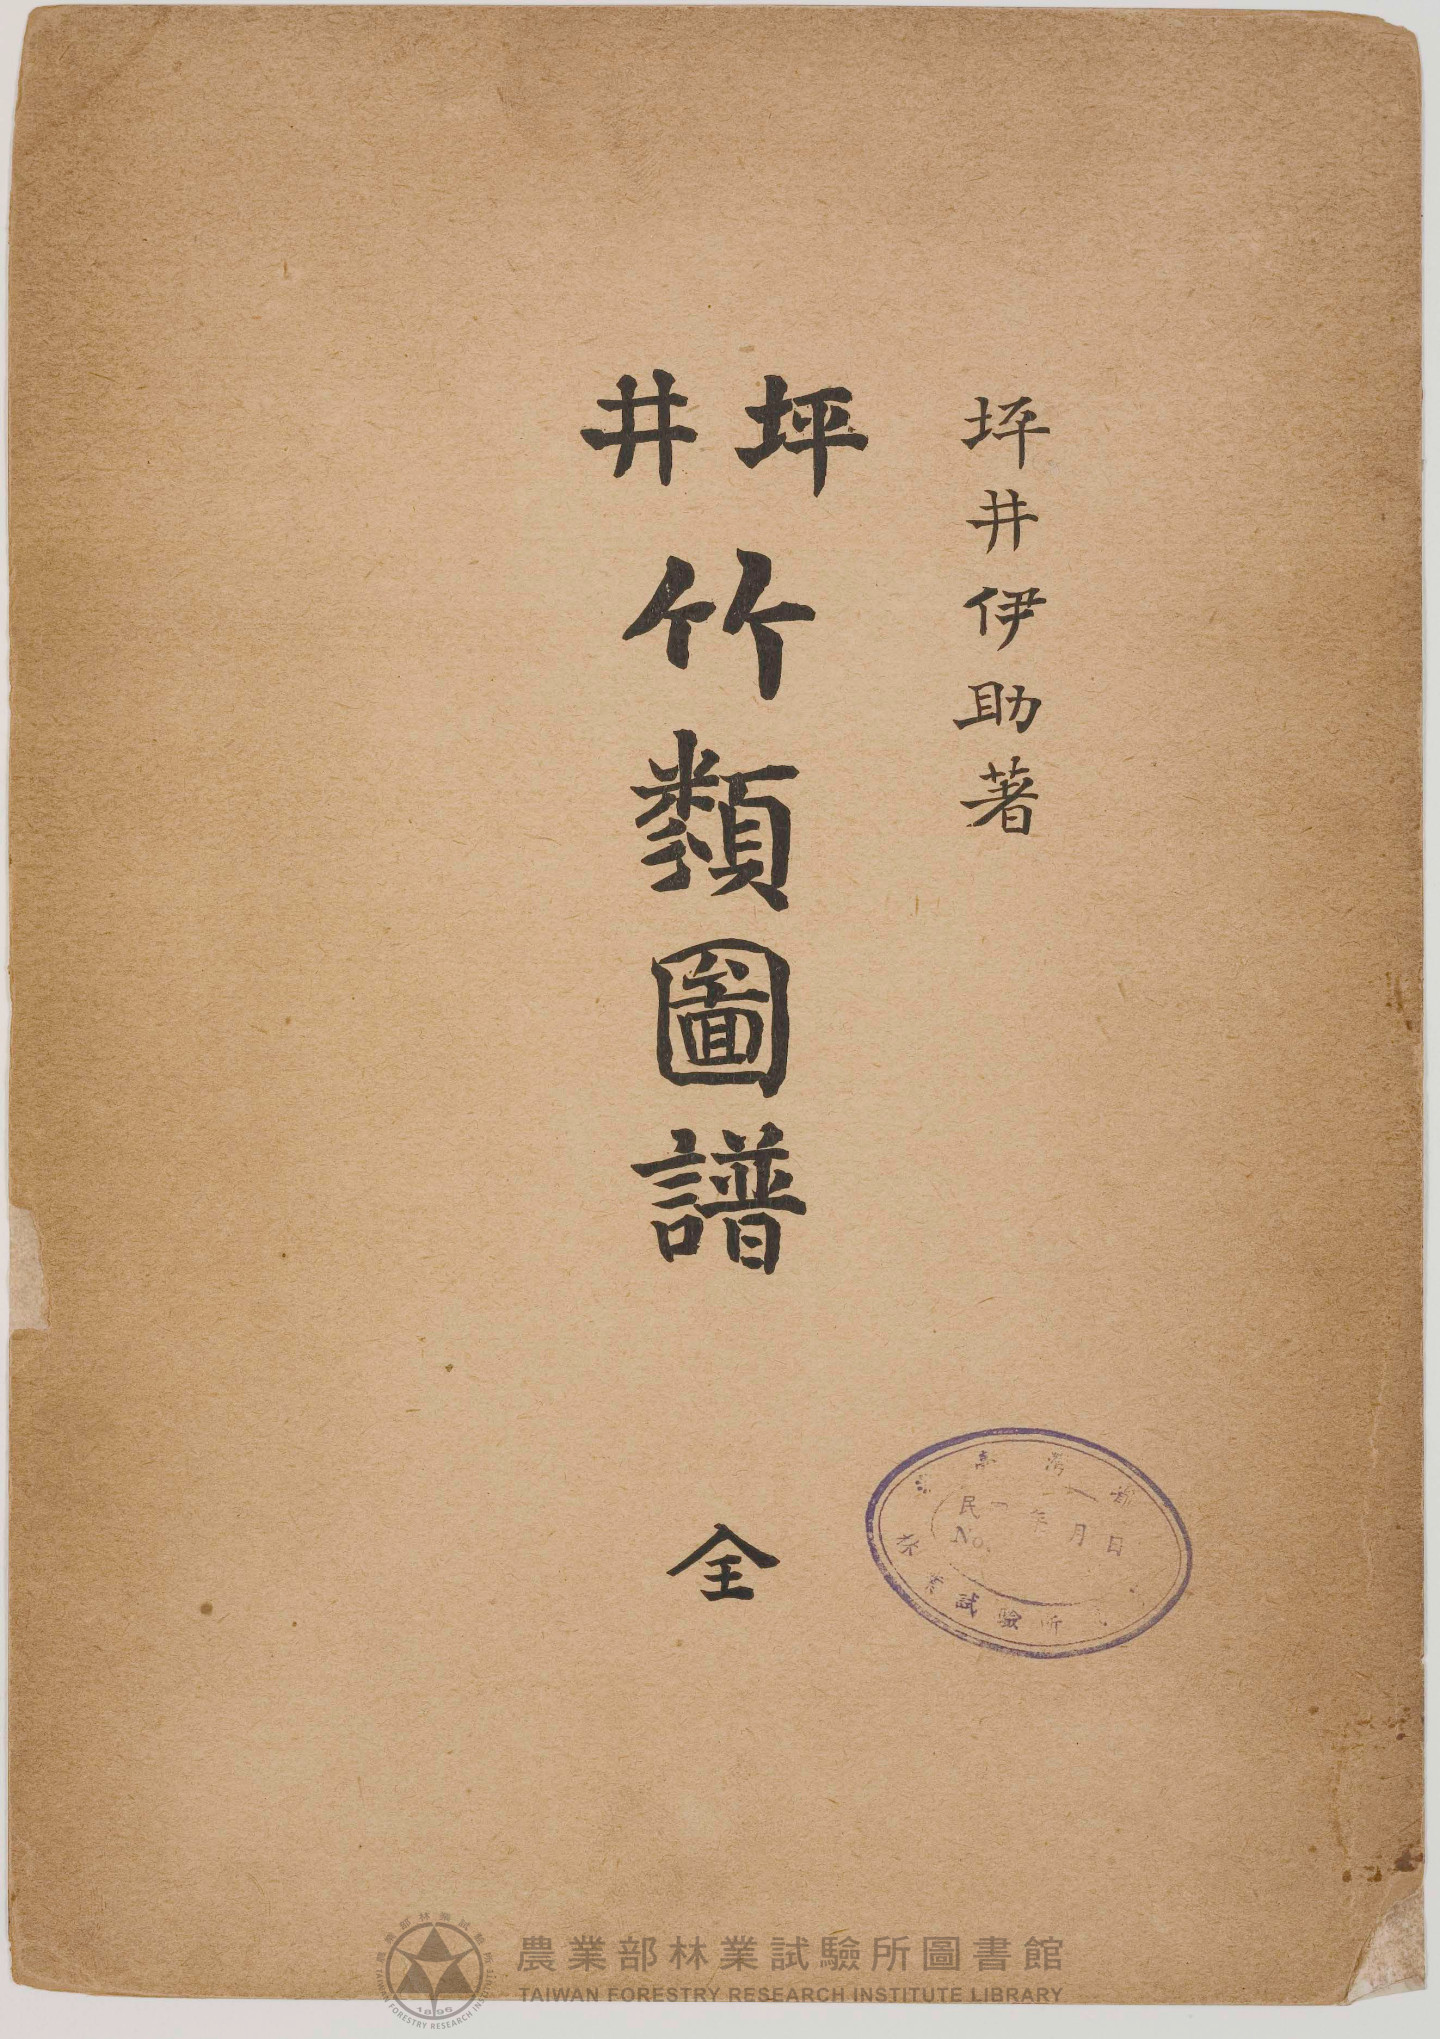 坪井伊助著
坪井
竹類圖譜
全
民一 年 月 日
No.
試驗所
農業部林業試驗所圖書館
TAIWAN FORESTRY RESEARCH INSTITUTE LIBRARY
1896